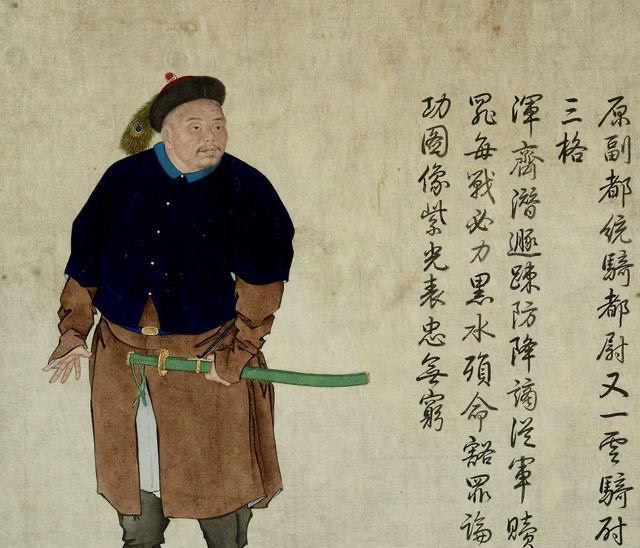 原副都統騎都尉又一雲騎尉
三格
渾齊潛遯疎防降謫從軍贖
罪每戰必力黑水殞命豁罪論
功圖像紫光表忠無窮